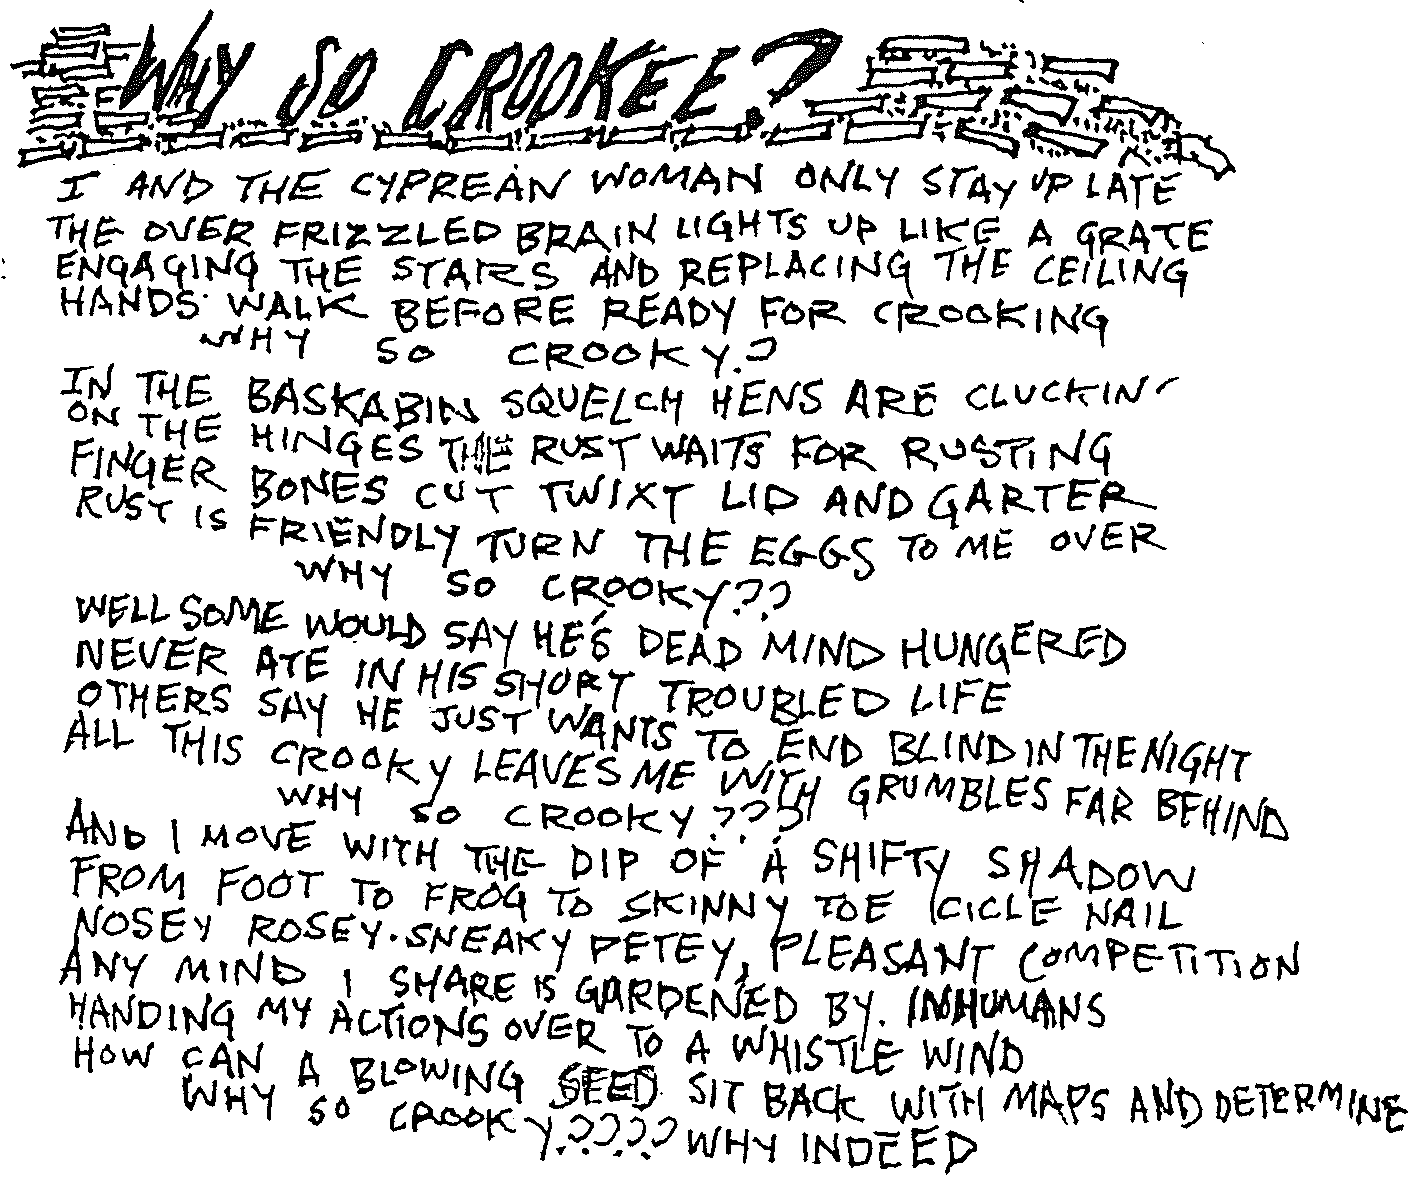 WHY SO CROOKEE?
I AND THE CYPREAN WOMAN ONLY STAY UP LATE
THE OVER FRIZZLED BRAIN LIGHTS UP LIKE A GRATE
ENGAGING THE STAIRS AND REPLACING THE CEILING
HANDS WALK BEFORE READY FOR CROOKING
WHY SO CROOKY?
IN THE BASKABIN SQUELCH HENS ARE CLUCKIN'
ON THE HINGES THE RUST WAITS FOR RUSTING
FINGER BONES CUT TWIXT LID AND GARTER
RUST IS FRIENDLY TURN THE EGGS TO ME OVER
WHY SO CROOKY??
WELL SOME WOULD SAY HE'S DEAD MIND HUNGERED
NEVER ATE IN HIS SHORT TROUBLED LIFE
OTHERS SAY HE JUST WANTS TO END BLIND IN THE NIGHT
ALL THIS CROOKY LEAVES ME WITH GRUMBLES FAR BEHIND
WHY SO CROOKY???
AND I MOVE WITH THE DIP OF A SHIFTY SHADOW
FROM FOOT TO FROG TO SKINNY TOE ICICLE NAIL
NOSEY ROSEY. SNEAKY PETEY, PLEASANT COMPETITION
ANY MIND I SHARE IS GARDENED BY. INHUMANS
HANDING MY ACTIONS OVER TO A WHISTLE WIND
HOW CAN A BLOWING SEED SIT BACK WITH MAPS AND DETERMINE
WHY SO CROOKY???? WHY INDEED